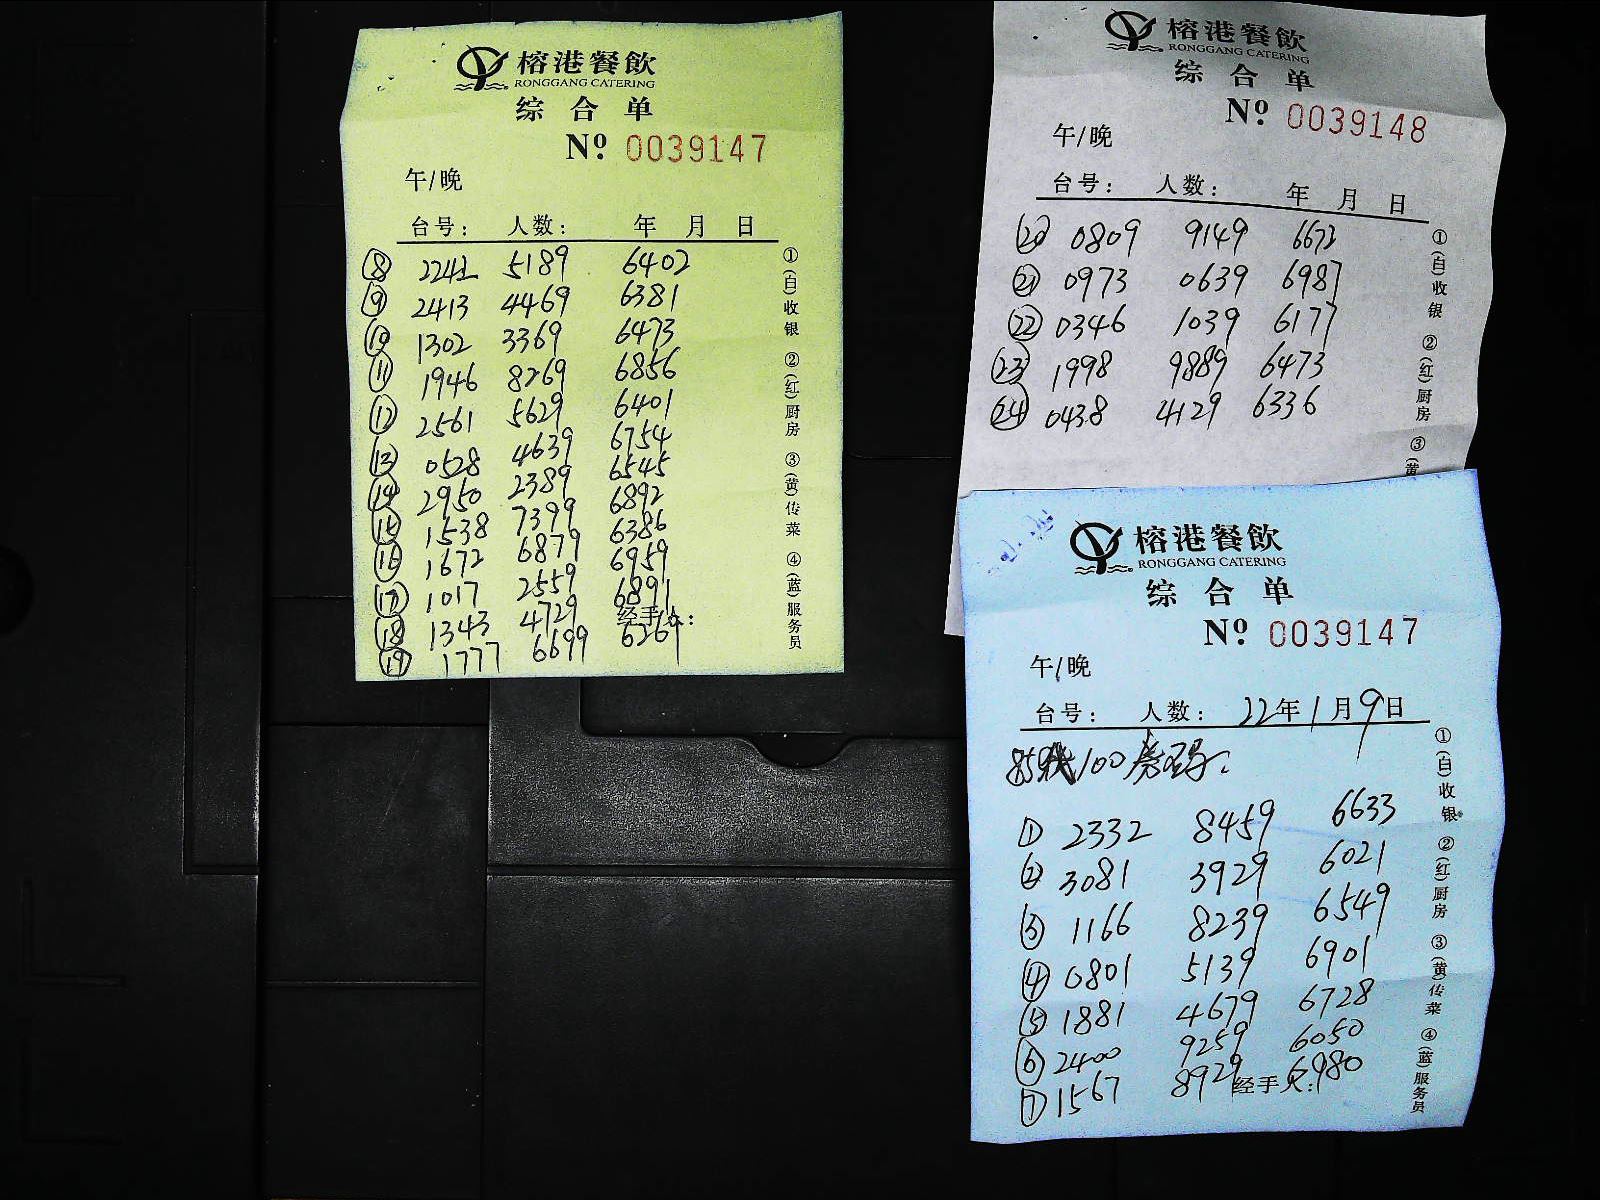 榕港餐飲
RONGGANG CATERING
综合单
Nº 0039147
午/晚
台号: 人数: 年 月 日
⑧ 2241 5189 6402
⑨ 2413 4469 6381
⑩ 1302 3369 6473
⑪ 1946 8269 6856
⑫ 2561 5629 6401
⑬ 0528 4639 6754
⑭ 2950 2389 6545
⑮ 1538 7399 6892
⑯ 1672 6879 6386
⑰ 1017 2559 6959
⑱ 1343 4729 6891
⑲ 1777 6699 6269
经手人:
①(白)收银 ②(红)厨房 ③(黄)传菜 ④(蓝)服务员
榕港餐飲
RONGGANG CATERING
综合单
Nº 0039148
午/晚
台号: 人数: 年 月 日
⑳ 0809 9149 6672
㉑ 0973 0639 6987
㉒ 0346 1039 6177
㉓ 1998 9889 6473
㉔ 0438 4129 6336
①(白)收银 ②(红)厨房 ③(黄
榕港餐飲
RONGGANG CATERING
综合单
Nº 0039147
午/晚
台号: 人数: 22年1月9日
100
① 2332 8459 6633
② 3081 3929 6021
③ 1166 8239 6549
④ 0801 5139 6901
⑤ 1881 4679 6728
⑥ 2400 9259 6050
⑦ 1567 8929 6980
经手人:
①(白)收银 ②(红)厨房 ③(黄)传菜 ④(蓝)服务员